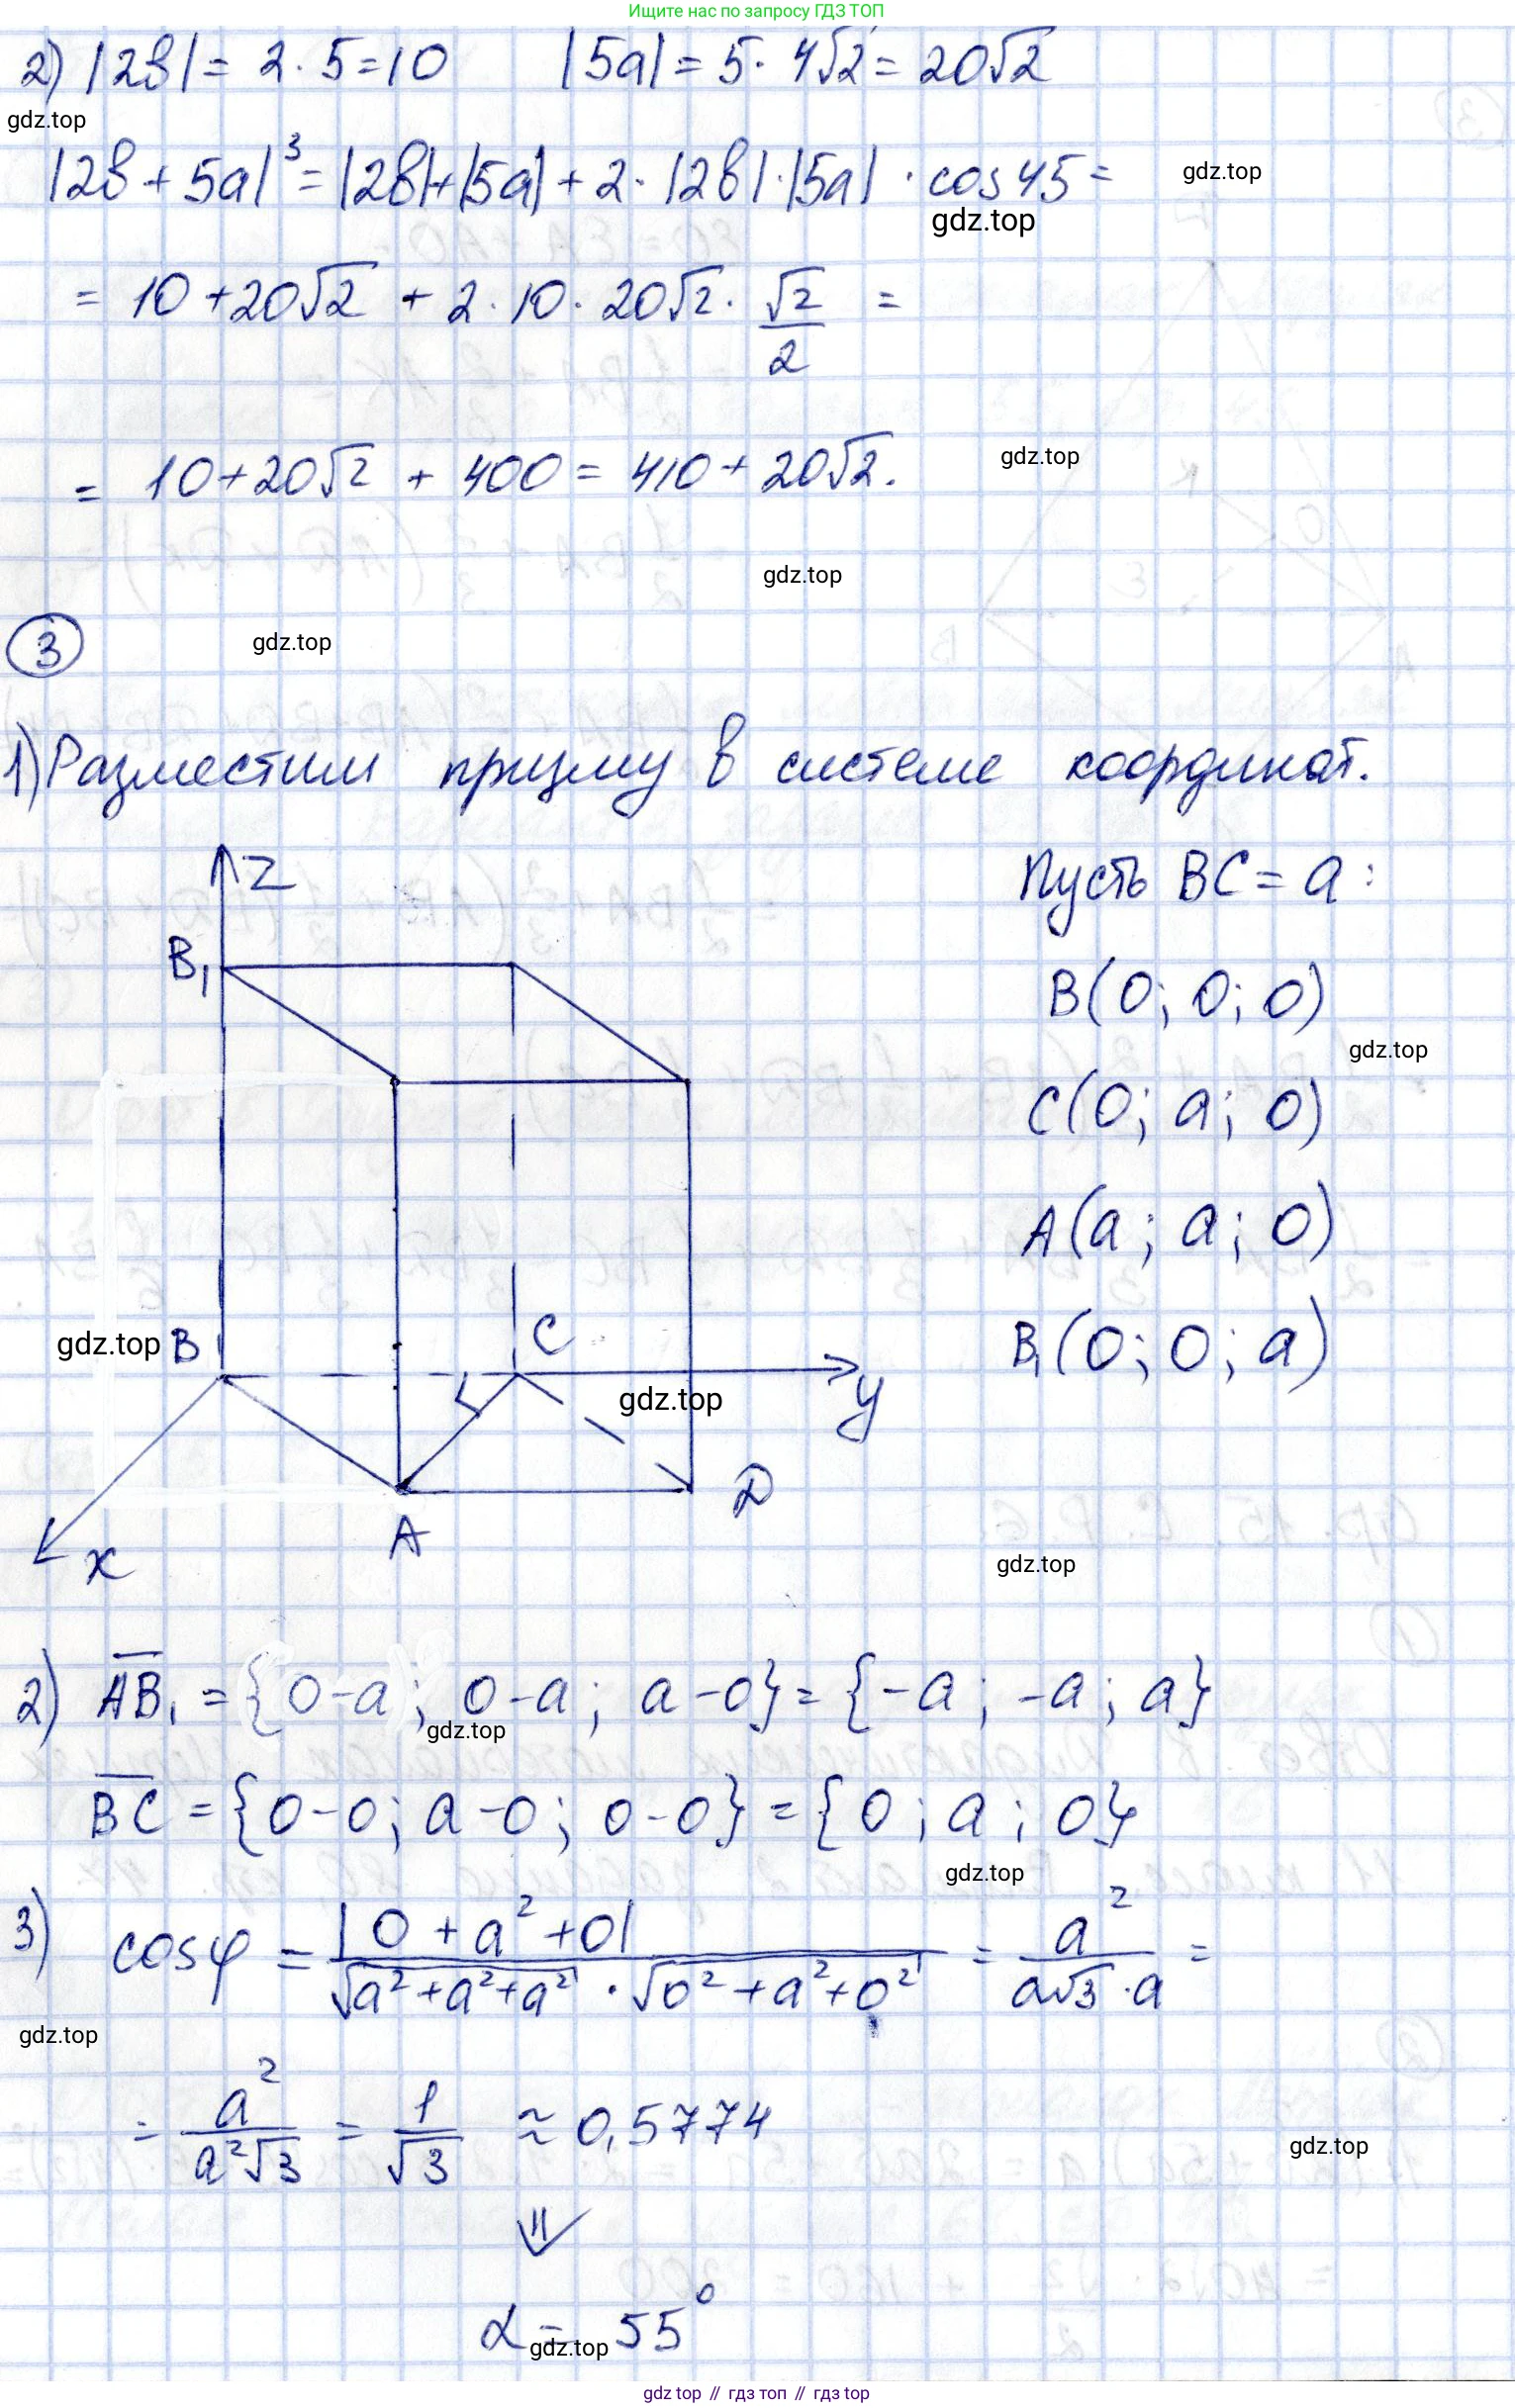 Ищите нас по запросу ГДЗ ТОП
2) |2в| = 2 · 5 = 10 |5а| = 5 · 4√2 = 20√2
gdz.top
|2в + 5а|³ = |2в| + |5а| + 2 · |2в| · |5а| · cos 45 =
gdz.top
gdz.top
= 10 + 20√2 + 2 · 10 · 20√2 · √2/2 =
= 10 + 20√2 + 400 = 410 + 20√2.
gdz.top
gdz.top
3
gdz.top
1) Разместим призму в системе координат.
Z
Пусть BC = a:
B₁
B(0; 0; 0)
gdz.top
C(0; a; 0)
A(a; a; 0)
B₁(0; 0; a)
gdz.top
B
C
gdz.top
y
D
A
x
gdz.top
2) AB₁ = {0-a; 0-a; a-0} = {-a; -a; a}
gdz.top
BC = {0-0; a-0; 0-0} = {0; a; 0}
gdz.top
3) cos φ = |0 + a² + 0| / √a²+a²+a² · √0²+a²+0² = a² / a√3 · a =
gdz.top
= a² / a²√3 = 1/√3 ≈ 0,5774
gdz.top
⇓
α = 55°
gdz.top
gdz top // гдз топ // гдз top